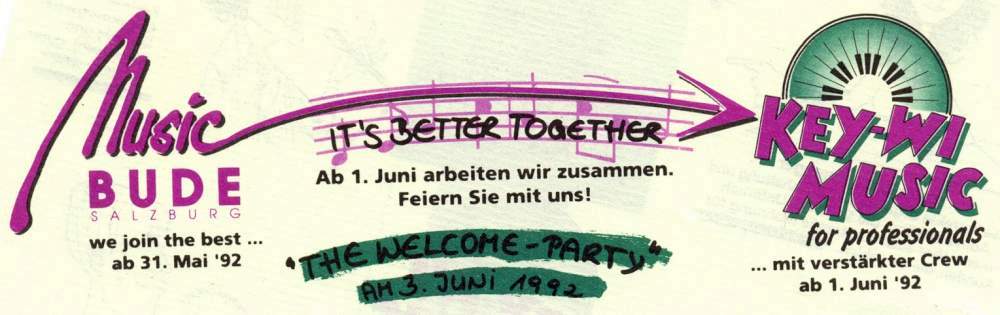 Music
BUDE
SALZBURG
we join the best ...
ab 31. Mai '92
IT'S BETTER TOGETHER
Ab 1. Juni arbeiten wir zusammen.
Feiern Sie mit uns!
"THE WELCOME-PARTY"
AM 3. JUNI 1992
KEY-WI
MUSIC
for professionals
... mit verstärkter Crew
ab 1. Juni '92